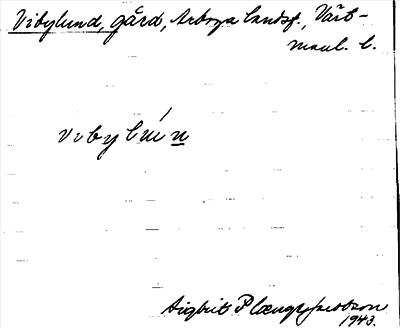 Vibylund, gård, Arboga landsf., Väst-
manl. l.
Vibylún
Sigbrit Plænge Jacobson
1943.